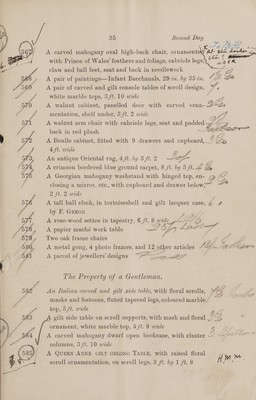 35
Second Day
567 A carved mahogany oval high-back chair, ornamented
with Prince of Wales' feathers and foliage, cabriole legs,
claw and ball feet, seat and back in needlework
568 A pair of paintings—Infant Bacchanals, 29 in. by 35 in.
569 A pair of carved and gilt console tables of scroll design,
white marble tops, 3 ft. 10 wide
570 A walnut cabinet, panelled door with carved orna-
mentation, shelf under, 3 ft. 2 wide
571 A walnut arm chair with cabriole legs, seat and padded
back in red plush
572 A Boulle cabinet, fitted with 9 drawers and cupboard,
4 ft. wide
573 An antique Oriental rug, 4 ft. by 5 ft. 2
574 A crimson bordered blue ground carpet, 8 ft. by 5 ft.
575 A Georgian mahogany washstand with hinged top, en-
closing a mirror, etc., with cupboard and drawer below,
2 ft. 2 wide
576 A tall ball clock, in tortoiseshell and gilt lacquer case,
by F.
577 A rose-wood settee in tapestry, 6 ft. 8 wide
578 A papier maché work table
579 Two oak frame chairs
580 A metal gong, 4 photo frames, and 12 other articles
581 A parcel of jewellers' designs
The Property of a Gentleman,
582 An Italian carved and gilt side table, with floral scrolls,
masks and festoons, fluted tapered legs, coloured marble
top, 5 ft. wide
583 A gilt side table on scroll supports, with mask and floral
ornament, white marble top, 5 ft. 9 wide
584 A carved mahogany dwarf open bookcase, with cluster
columns, 3 ft. 10 wide
585 A Queen Anne gilt gesso Table, with raised floral
scroll ornamentation, on scroll legs, 3 ft. by 1 ft. 8